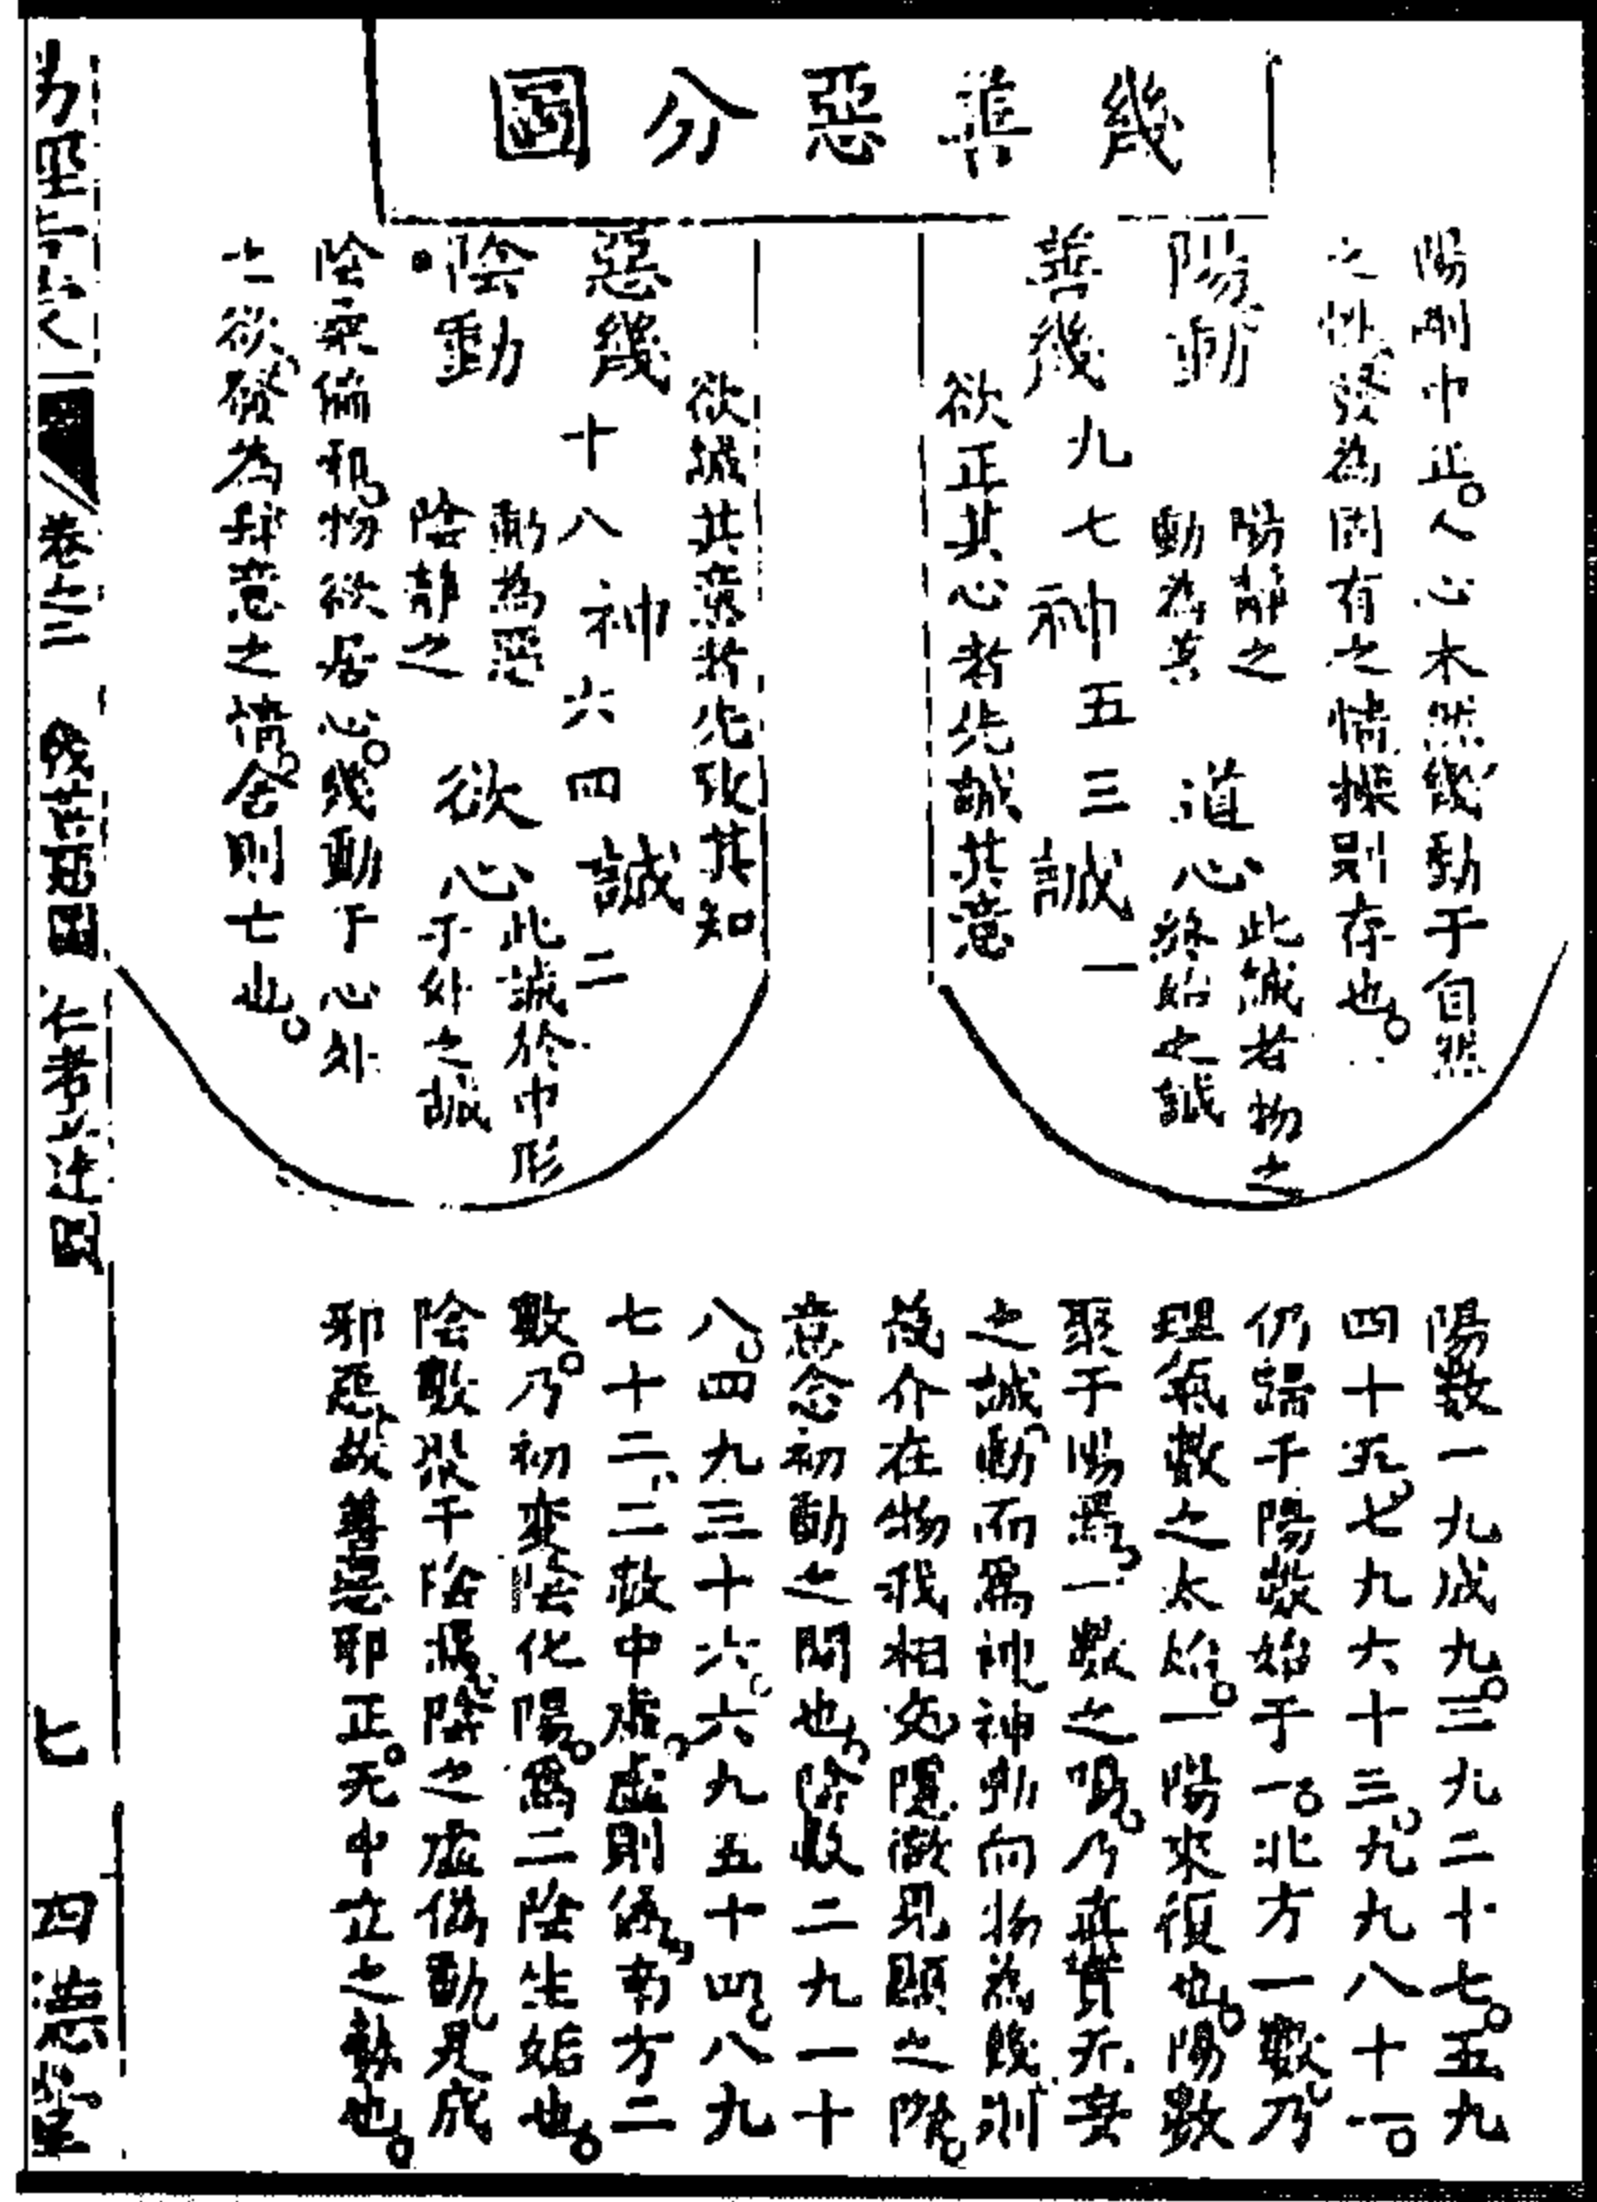 幾善惡分圖
陽剛中正。人心本然幾動于自然
之性、發為固有之情操則存也。
陽動
陽靜之
動為善
道心
此誠者物之
終始之誠
善幾
九七
神
五三
誠
一
欲正其心者先誠其意
欲誠其意者先致其知
惡幾
十八
神
六四
誠
二
陰動
動為惡
陰靜之
欲心
此誠於中形
于外之誠
陰柔偏私物欲居心。幾動于心外
之欲、發為私意之情。舍則亡也。
陽數一九成九。三九二十七。五九
四十五、七九六十三。九九八十一。
仍歸于陽數始于一。北方一數。乃
理氣數之太始。一陽來復也。陽數
聚于陽焉、一數之實。乃真實无妄
之誠、動而爲神、神動向物為幾、則
幾介在物我相交、隱微見顯之際。
意念初動之間也。陰數二九一十
八。四九三十六。六九五十四。八九
七十二、二數中虛。虛則偽。南方二
數。乃初變陰化陽。爲二陰生姤也。
陰數聚于陰焉、陰之虛偽動、見成
邪惡、故善惡邪正。无中立之勢也。
卷之三
幾善惡圖
七
四德堂